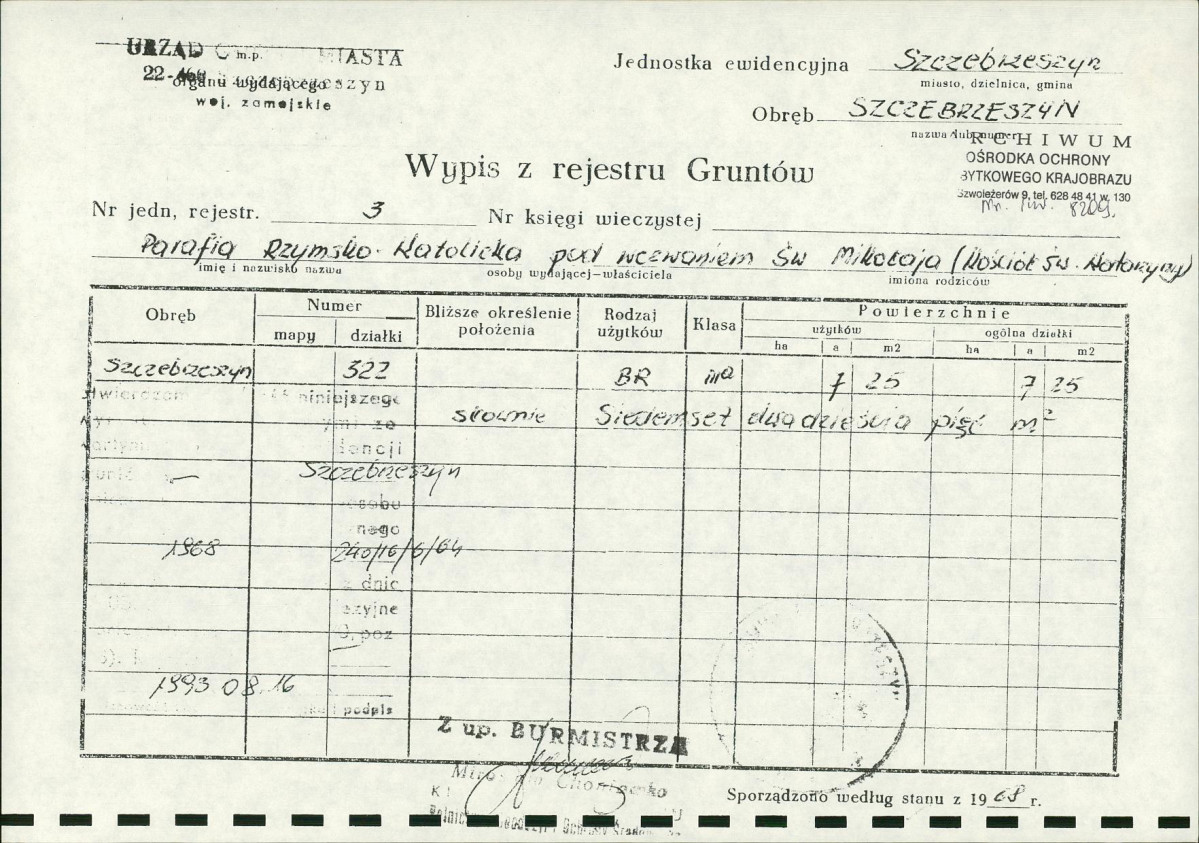 URZĄD m.p. MIASTA
22-460 Szczebrzeszyn
organu wydającego
woj. zamojskie
Jednostka ewidencyjna Szczebrzeszyn
miasto, dzielnica, gmina
Obręb SZCZEBRZESZYN
nazwa lub numer
RCHIWUM
OŚRODKA OCHRONY
BYTKOWEGO KRAJOBRAZU
Szwoleżerów 9, tel. 628 48 41 w. 130
Nr. inw. 8209.
Wypis z rejestru Gruntów
Nr jedn, rejestr. 3 Nr księgi wieczystej
Parafia Rzymsko-Katolicka pod wezwaniem Św Mikołaja (Kościół św. Katarzyny)
imię i nazwisko nazwa osoby wydającej—właściciela imiona rodziców
Obręb Numer Bliższe określenie położenia Rodzaj użytków Klasa Powierzchnie
mapy działki użytków ogólna działki
ha a m2 ha a m2
Szczebrzeszyn 322 BR IIIa 7 25 7 25
niniejszego
słownie Siedemset dwadzieścia pięć m²
Szczebrzeszyn
nego
1968 240/16/6/64
z dnic
poz
1993 08. 16
podpis
Z up. BURMISTRZA
Sporządzono według stanu z 1968 r.